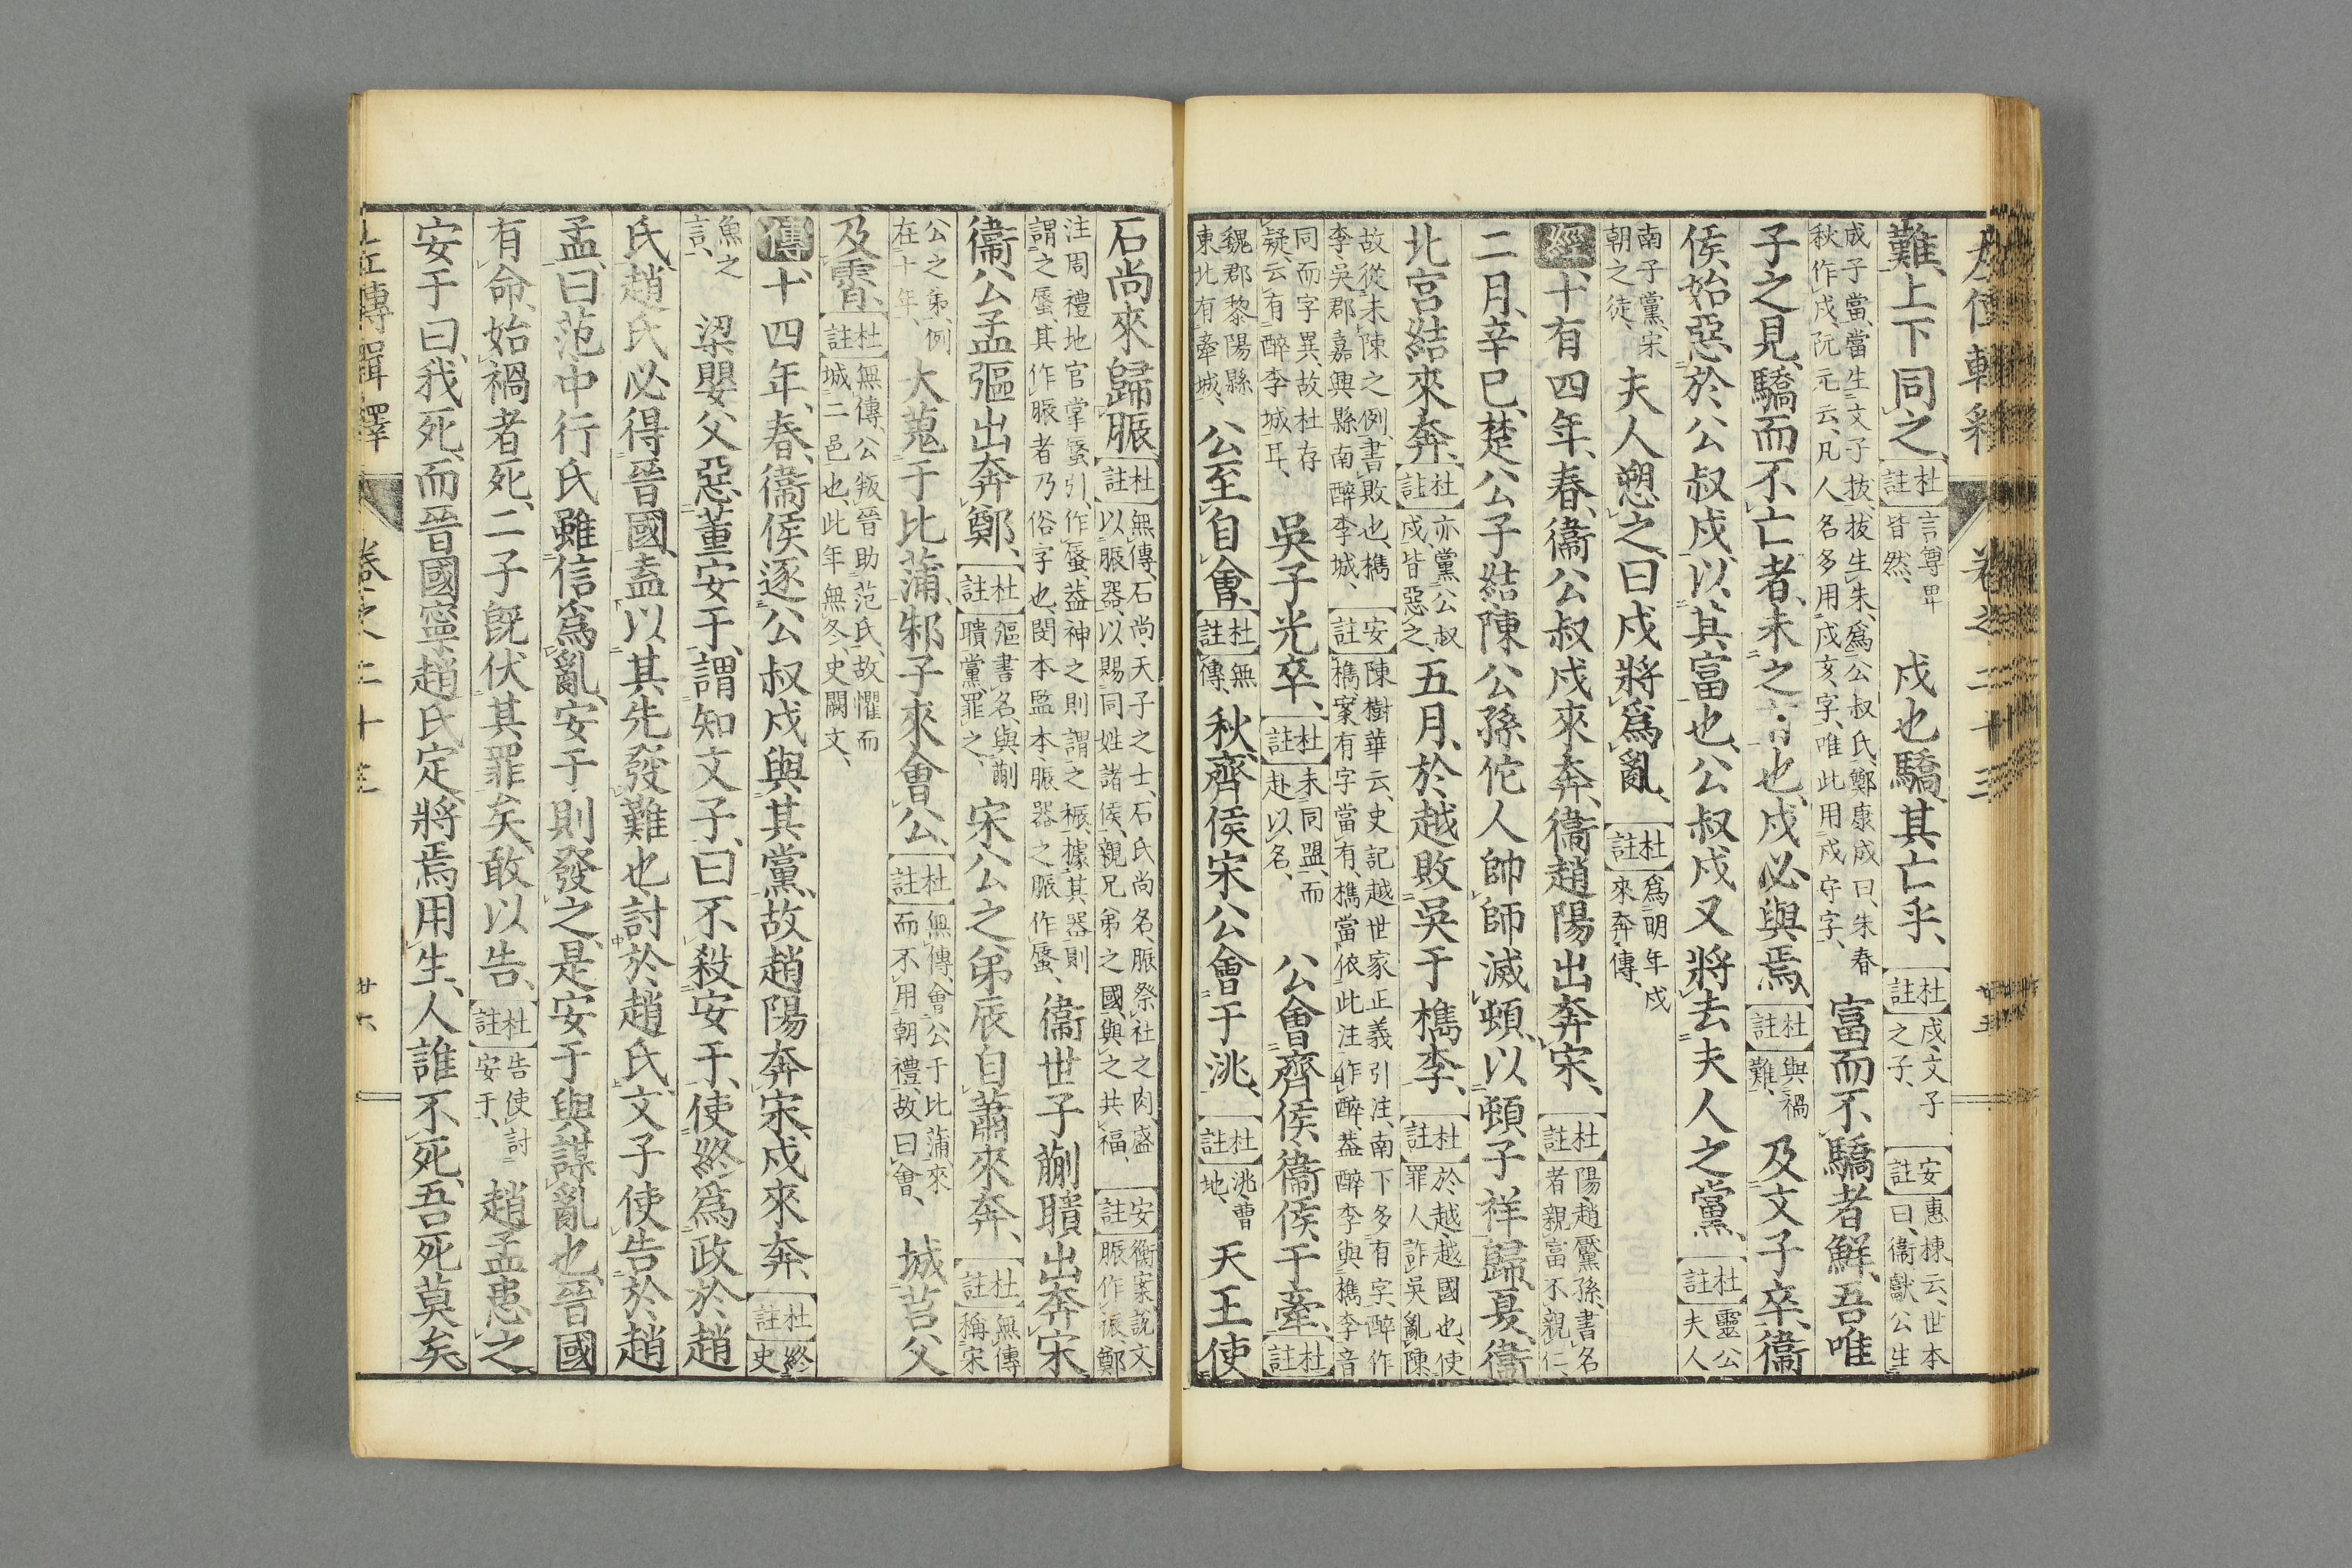 難、上下同之、杜註言尊卑皆然、戍也驕、其亡乎、杜註戍、文子之子、安註惠棟云、世本曰、衞獻公生
成子當、當生文子拔、拔生朱、爲公叔氏、鄭康成曰、朱春秋作戍、阮元云、凡人名多用戊亥字、唯此用戍守字、富而不驕者鮮、吾唯
子之見、驕而不亡者、未之有也、戍必與焉、杜註與禍難、及文子卒、衞
侯始惡於公叔戍、以其富也、公叔戍又將去夫人之黨、杜註靈公夫人
南子黨、宋朝之徒、夫人愬之曰、戍將爲亂、杜註爲明年戍來奔傳、
經十有四年、春、衞公叔戍來奔、衞趙陽出奔宋、杜註陽、趙黶孫、書名者、親富不親仁、
二月、辛巳、楚公子結陳公孫佗人帥師滅頓、以頓子牂歸、夏、衞
北宮結來奔、杜註亦黨公叔戍、皆惡之、五月、於越敗吳于檇李、杜註於越、越國也、使罪人詐吳亂陳、
故從未陳之例、書敗也、檇李、吳郡嘉興縣南醉李城、安註陳樹華云、史記越世家正義引注、南下多有字、醉作檇、案、有字當有、檇當依此注作醉、葢醉李與檇李音
同而字異、故杜存疑、云有醉李城耳、吳子光卒、杜註未同盟、而赴以名、公會齊侯衞侯于牽、杜註
魏郡黎陽縣東北有牽城、公至自會、杜註無傳、秋、齊侯宋公會于洮、杜註洮、曹地、天王使
石尚來歸脤、杜註無傳、石尚、天子之士、石氏尚名、脤、祭社之肉、盛以脤器、以賜同姓諸侯、親兄弟之國、與之共福、安註衡案、說文脤作祳、鄭
注周禮地官掌蜃引作蜃、葢神之則謂之祳、據其器則謂之蜃、其作脤者乃俗字也、閔本監本、脤器之脤作蜃、衞世子蒯聵出奔宋
衞公孟彄出奔鄭、杜註彄書名、與蒯聵黨、罪之、宋公之弟辰自蕭來奔、杜註無傳稱宋
公之弟、例在十年、大蒐于比蒲、邾子來會公、杜註無傳、會公于比蒲、來而不用朝禮、故曰會、城莒父
及霄、杜註無傳、公叛晉助范氏、故懼而城二邑也、此年無冬、史闕文、
傳十四年、春、衞侯逐公叔戍與其黨、故趙陽奔宋、戍來奔、杜註終史
魚之言、梁嬰父惡董安于、謂知文子曰、不殺安于、使終爲政於趙
氏、趙氏必得晉國、盍以其先發難也、討於趙氏、文子使告於趙
孟曰、范中行氏雖信爲亂、安于則發之、是安于與謀亂也、晉國
有命、始禍者死、二子旣伏其罪矣、敢以告、杜註告使討安于、趙孟患之
安于曰、我死、而晉國寧、趙氏定、將焉用生、人誰不死、吾死莫矣
卷之二十三